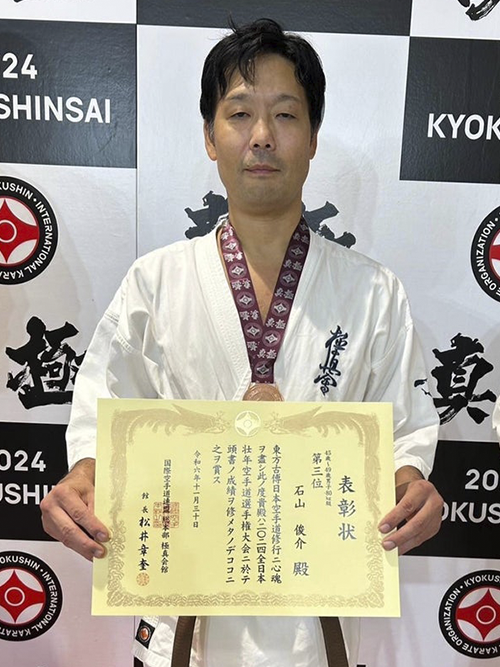 024
USHINSAI
KYOKU
KYOKUSHIN・INTERNATIONAL KARATE
極
真
極真会
表彰状
第三位
石山 俊介 殿
東方古傳日本空手道修行ニ心魂
ヲ盡シ此ノ度貴殿ハ二〇二四全日本
壮年空手道選手権大会ニ於テ
頭書ノ成績ヲ修メタノデココニ
之ヲ賞ス
令和六年十一月三十日
国際空手道連盟総本部 極真会館
館長 松井章奎
2024
USHINSAI
20
YOKUSH
KYOKUSHIN・INTERNATIONAL